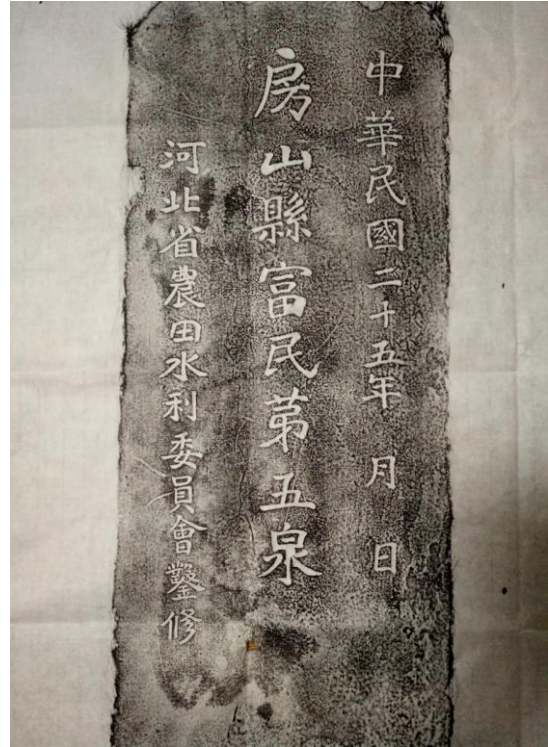 中華民國二十五年 月 日
房山縣富民第五泉
河北省農田水利委員會鑿修